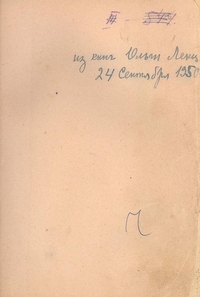 III
из книг Ольги Ленц
24 Сентября 1950